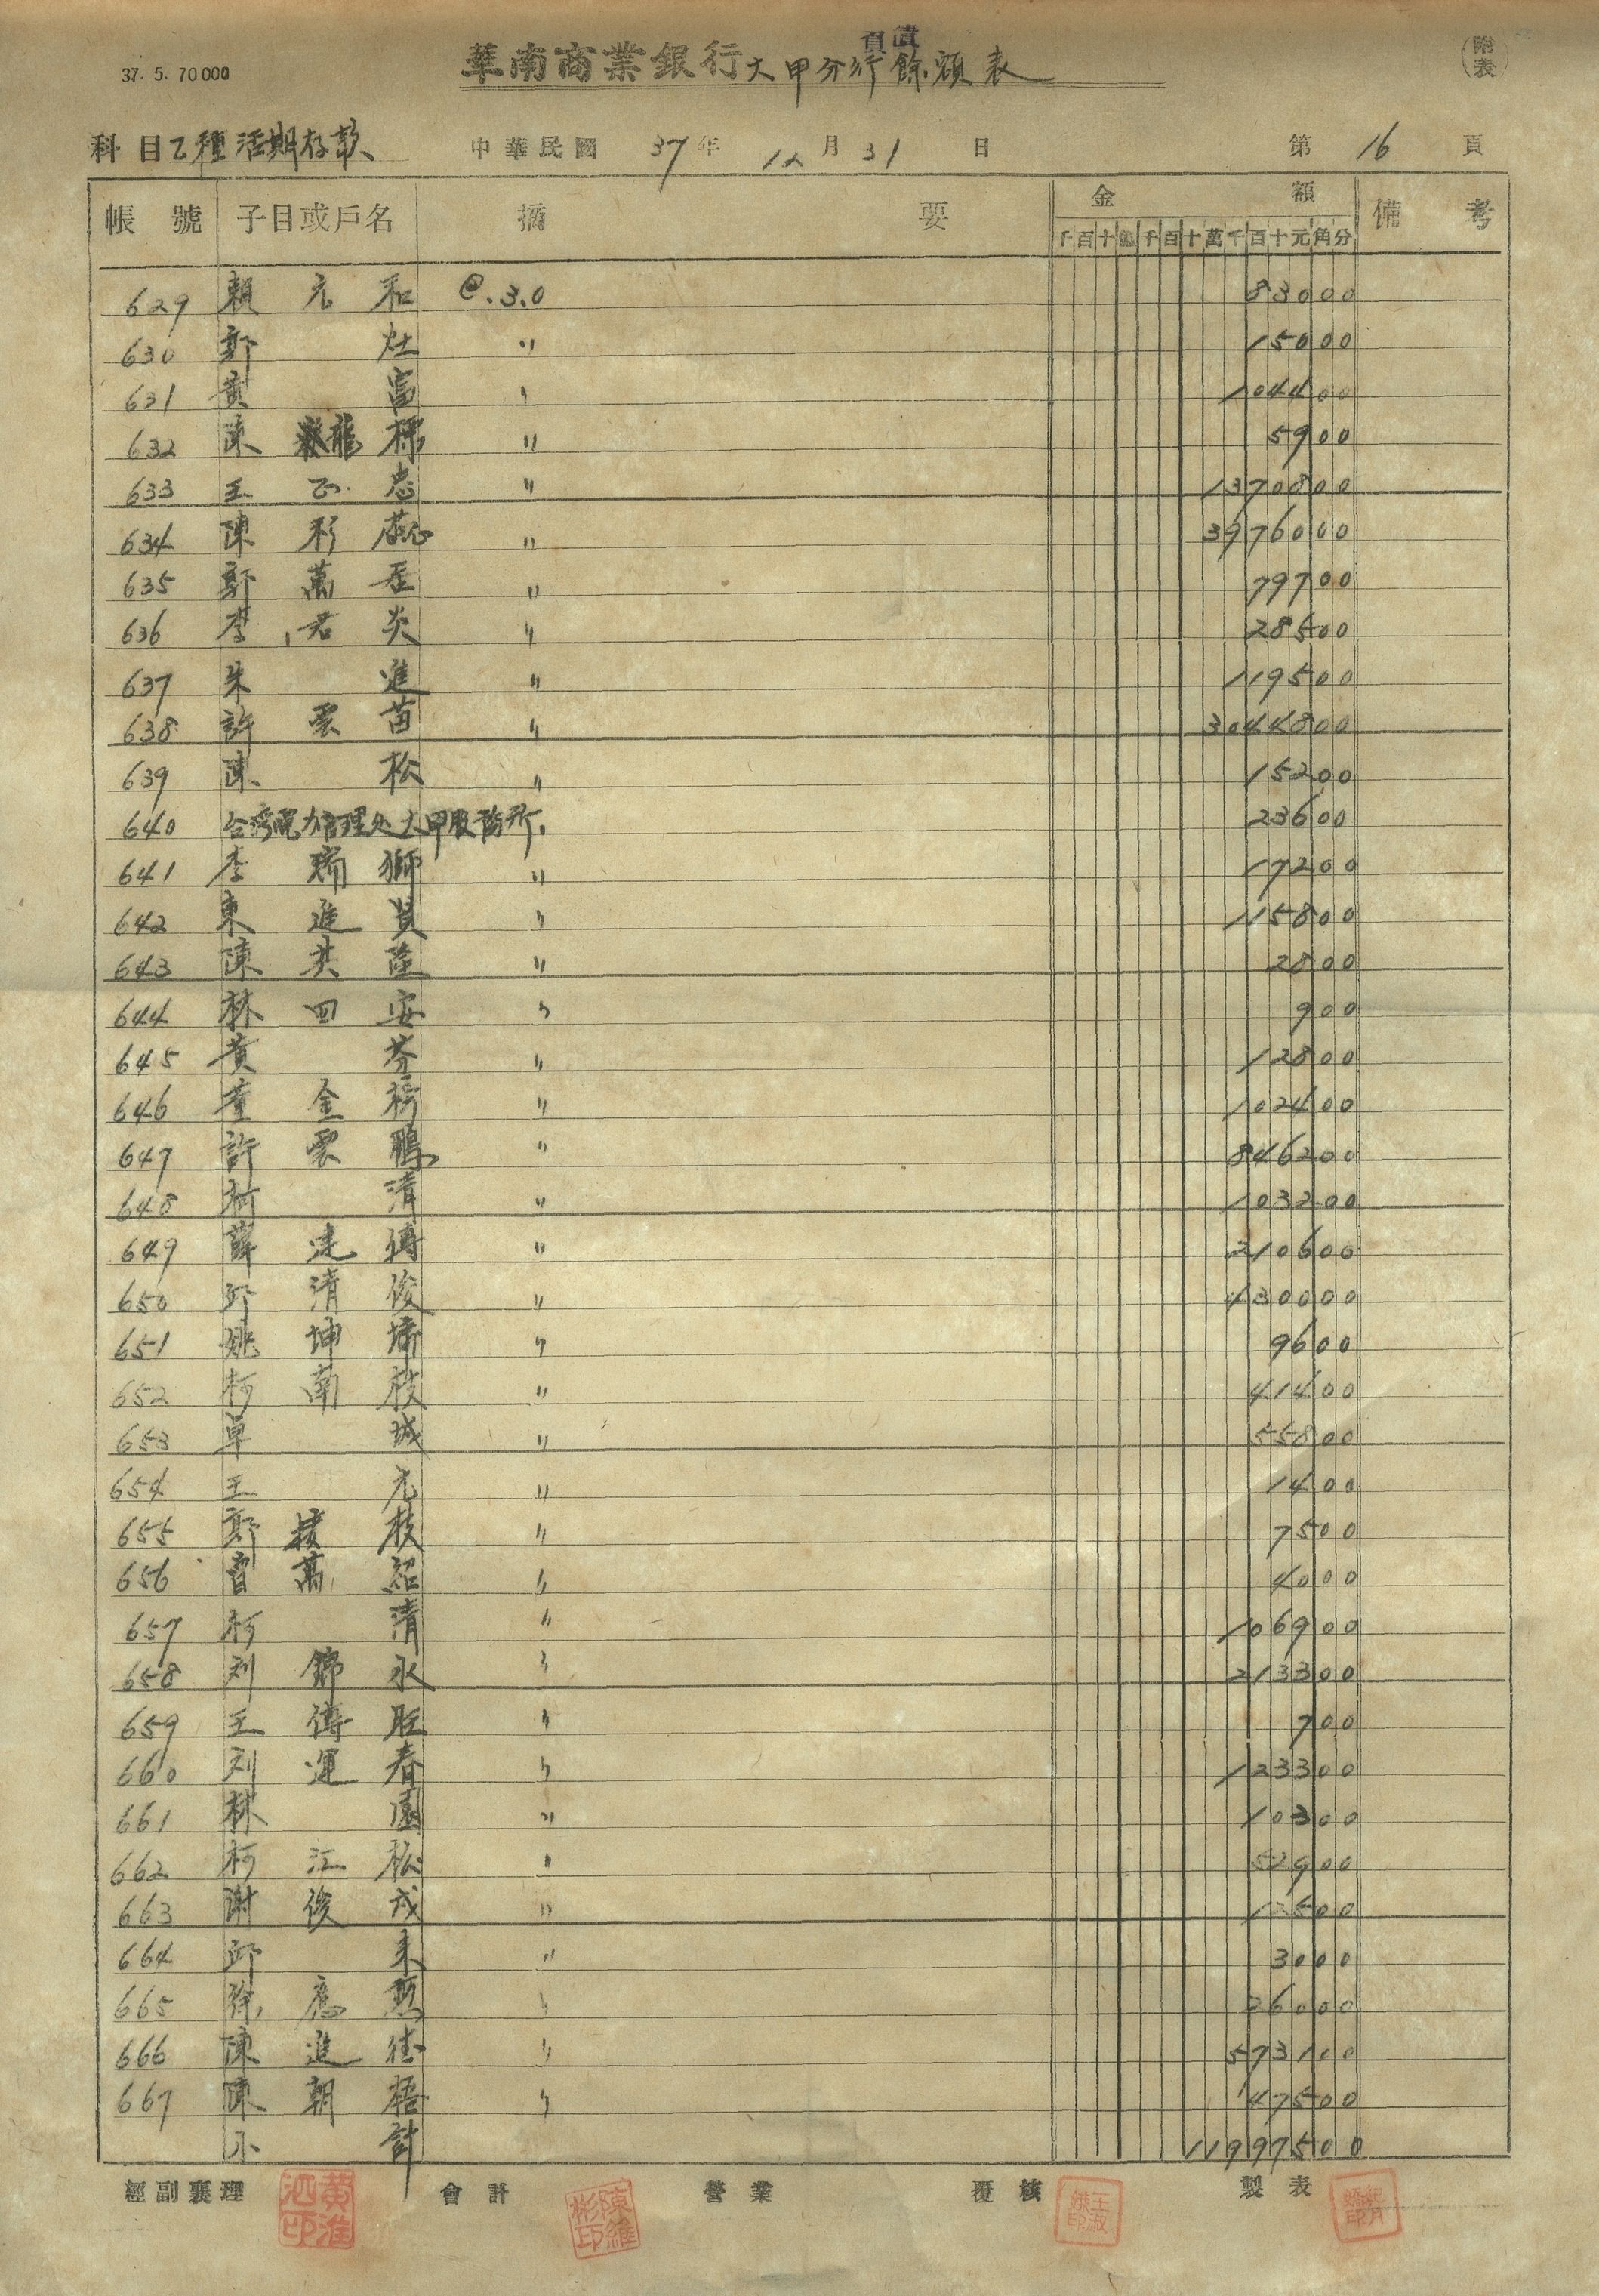 37. 5. 70000
華南商業銀行大甲分行餘額表
附表
科目乙種活期存款 中華民國37年12月31日 第16頁
帳號 子目或戶名 摘要 金額 備考
千百十億千百十萬千百十元角分
629 賴元和 @.3.0 83000
630 郭灶 〃 15000
631 黄富 〃 104400
632 陳龍標 〃 5900
633 王正志 〃 1370800
634 陳彩蕊 〃 3976000
635 郭萬 〃 79700
636 李君炎 〃 28500
637 朱進 〃 119500
638 許雲苗 〃 3044800
639 陳松 〃 15200
640 台湾電力管理処大甲服務所 〃 23600
641 李瑞獅 〃 17200
642 東進貝 〃 115800
643 陳其蓮 〃 2800
644 林四安 〃 900
645 黄芬 〃 12800
646 董金 〃 102400
647 許雲鵬 〃 846200
648 柯清 〃 103200
649 薛建傳 〃 210600
650 邱清俊 〃 430000
651 姚坤墉 〃 9600
652 柯南枝 〃 41400
653 卓城 〃 55800
654 王元 〃 1400
655 鄭接枝 〃 7500
656 曾萬紹 〃 4000
657 柯清 〃 106900
658 刘錦永 〃 213300
659 王傳旺 〃 700
660 刘運春 〃 123300
661 林園 〃 10300
662 柯江松 〃 52900
663 謝俊成 〃 12500
664 邱来 〃 3000
665 徐應 〃 26000
666 陳進德 〃 573100
667 陳朝梧 〃 47500
小計 11997500
經副襄理 會計 營業 覆核 製表
黄淮泗印 陳維彬印 王淑娥印